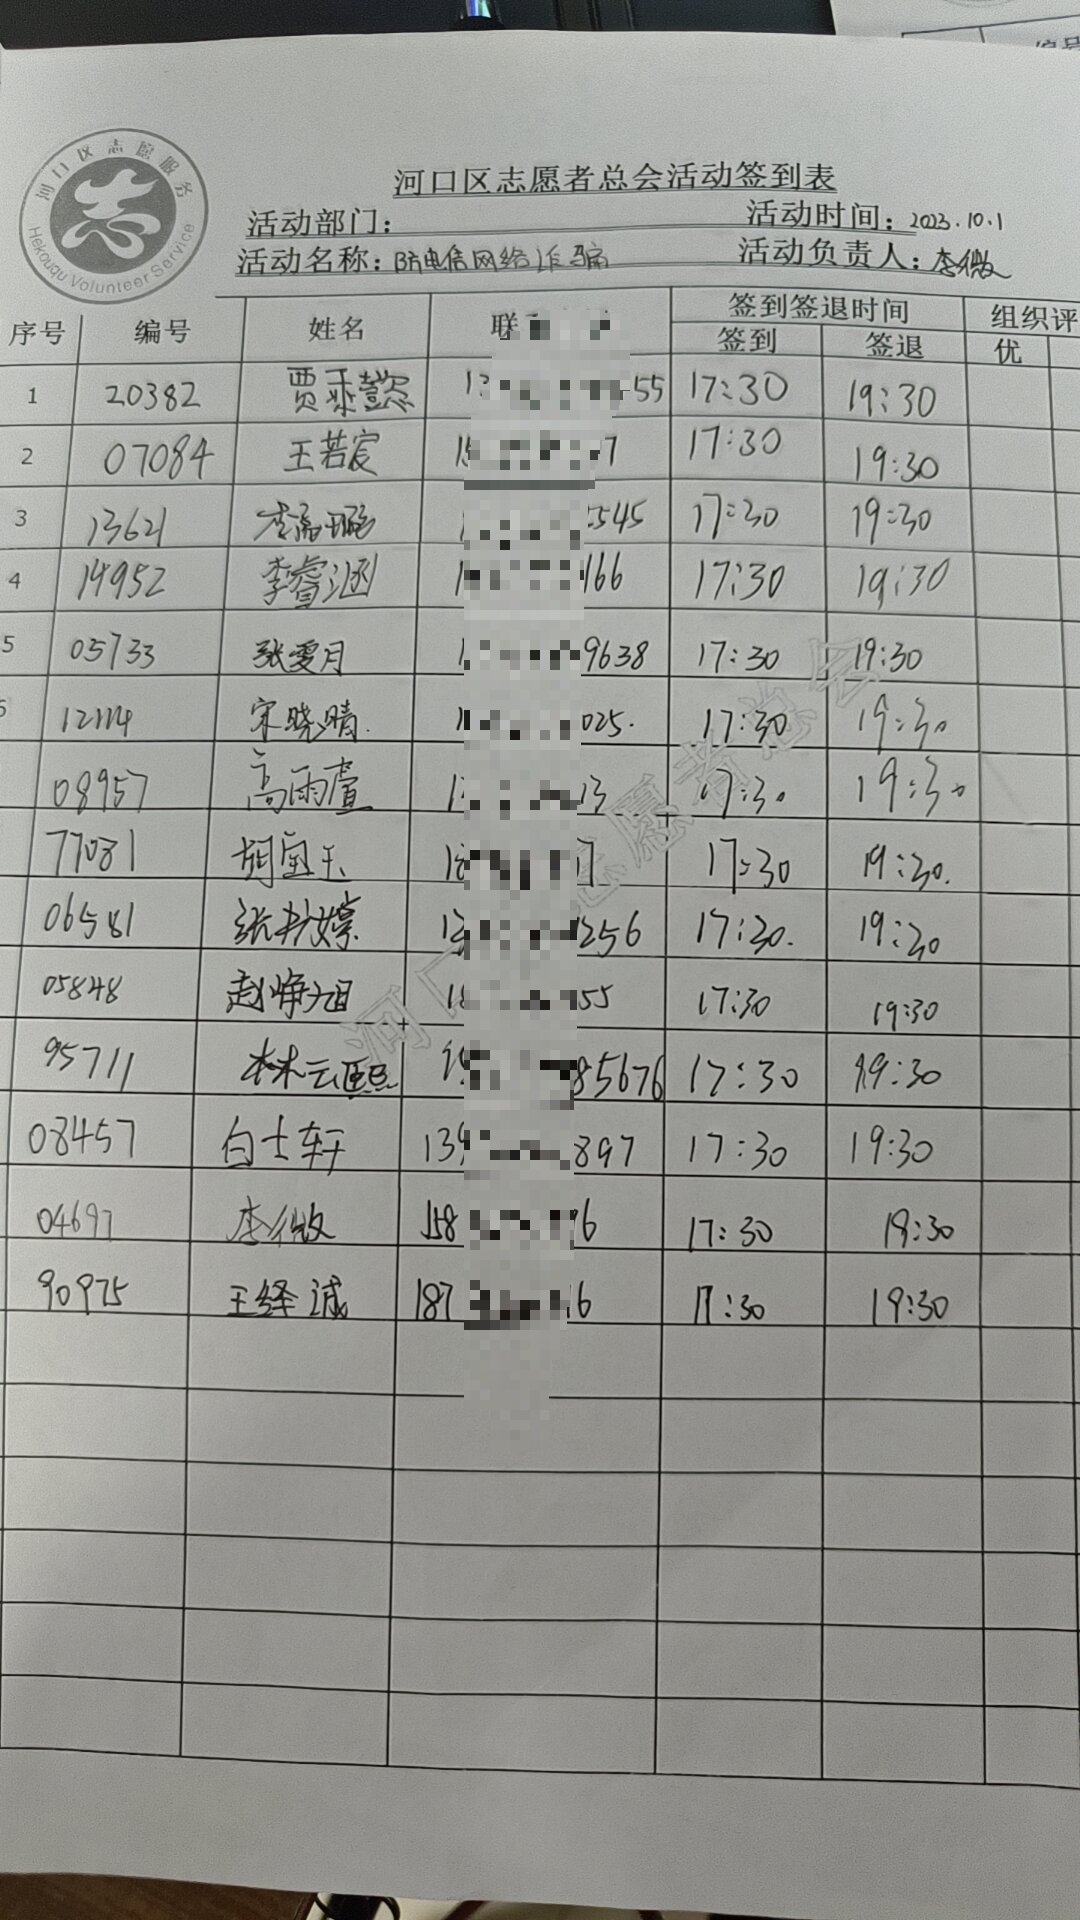 编号
河口区志愿服务
Hekouqu Volunteer Service
河口区志愿者总会活动签到表
活动部门： 活动时间：2023.10.1
活动名称：防电信网络诈骗 活动负责人：李微
序号 编号 姓名 联 签到签退时间 组织评
签到 签退 优
1 20382 贾 55 17:30 19:30
2 07084 王若宸 7 17:30 19:30
3 13621 李 5545 17:30 19:30
4 14952 李睿涵 166 17:30 19:30
5 05733 张雯月 9638 17:30 19:30
12114 宋晓晴. 025. 17:30 19:30
08957 高雨萱 13 17:30 19:30
77081 胡宝玉 7 17:30 19:30.
06581 张书婷 1256 17:30. 19:30
05848 赵峥旭 55 17:30 19:30
95711 林云熙 85676 17:30 19:30
08457 白士轩 139 897 17:30 19:30
04697 李微 158 6 17:30 19:30
90975 王绎诚 187 16 17:30 19:30
河口 志愿者总会